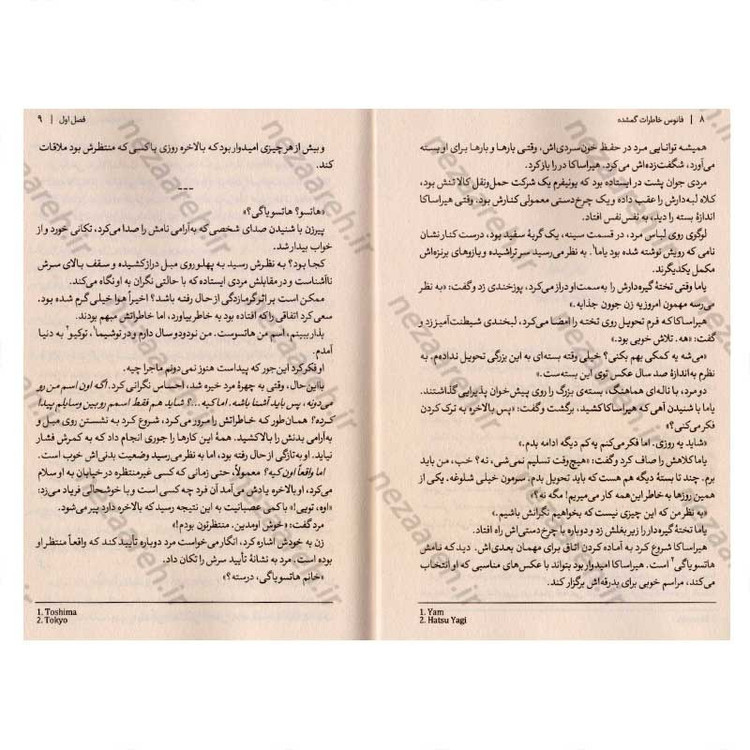 ۸ | فانوس خاطرات گمشده
همیشه توانایی مرد در حفظ خون‌سردی‌اش، وقتی بارها و بارها برای او بسته
می‌آورد، شگفت‌زده‌اش می‌کرد. هیراساکا در را باز کرد.
مردی جوان پشت در ایستاده بود که یونیفرم یک شرکت حمل‌ونقل کالا تنش بود،
کلاه لبه‌دارش را عقب داده و یک چرخ‌دستی معمولی کنارش بود. وقتی هیراساکا
اندازهٔ بسته را دید، به نفس نفس افتاد.
لوگوی روی لباس مرد، در قسمت سینه، یک گربهٔ سفید بود، درست کنار نشان
نامی که رویش نوشته شده بود یاما¹. به نظر می‌رسید سر تراشیده و بازوهای برنزه‌اش
مکمل یکدیگرند.
یاما وقتی تختهٔ گیره‌دارش را به‌سمت او دراز می‌کرد، پوزخندی زد و گفت: «به نظر
می‌رسه مهمون امروز یه زن جوون جذابه.»
هیراساکا که فرم تحویل روی تخته را امضا می‌کرد، لبخندی شیطنت‌آمیز زد و
گفت: «هه. تلاش خوبی بود.»
«می‌شه یه کمکی بهم بکنی؟ خیلی وقته بسته‌ای به این بزرگی تحویل نداده‌م. به
نظرم به‌اندازهٔ صد سال عکس توی این بسته‌ست.»
دو مرد، با ناله‌ای هماهنگ، بسته‌ی بزرگ را روی پیش‌خوان پذیرایی گذاشتند.
یاما با شنیدن آهی که هیراساکا کشید، برگشت و گفت: «پس بالاخره به ترک کردن
فکر می‌کنی؟»
«شاید یه روزی. اما فکر می‌کنم یه کم دیگه ادامه بدم.»
یاما کلاهش را صاف کرد و گفت: «هیچ‌وقت تسلیم نمی‌شی، نه؟ خب، من باید
برم. چند تا بستهٔ دیگه هم هست که باید تحویل بدم. سرمون خیلی شلوغه. یکی از
همین روزها به خاطر این همه کار می‌میریم! مگه نه؟»
«به نظر من که این چیزی نیست که بخواهیم نگرانش باشیم.»
یاما تختهٔ گیره‌دار را زیر بغلش زد و دوباره با چرخ‌دستی‌اش راه افتاد.
هیراساکا شروع کرد به آماده کردن اتاق برای مهمان بعدی‌اش. دید که نامش
هاتسو یاگی² است. هیراساکا امیدوار بود بتواند با عکس‌های مناسبی که او انتخاب
می‌کند، مراسم خوبی برای بدرقه‌اش برگزار کند.
1. Yam
2. Hatsu Yagi
فصل اول | ۹
و بیش از هر چیزی امیدوار بود که بالاخره روزی با کسی که منتظرش بود ملاقات
کند.
---
«هاتسو؟ هاتسو یاگی؟»
پیرزن با شنیدن صدای شخصی که به‌آرامی نامش را صدا می‌کرد، تکانی خورد و از
خواب بیدار شد.
کجا بود؟ به نظرش رسید به پهلو روی مبل دراز کشیده و سقف بالای سرش
ناآشناست و در مقابلش مردی ایستاده که با حالتی نگران به او نگاه می‌کند.
ممکن است بر اثر گرمازدگی از حال رفته باشد؟ اخیراً هوا خیلی گرم شده بود.
سعی کرد اتفاقی را که افتاده بود به خاطر بیاورد، اما خاطراتش مبهم بودند.
بذار ببینم، اسم من هاتسوست. من نودودو سال دارم و در توشیما¹، توکیو² به دنیا
آمدم.
او فکر کرد این‌جور که پیداست هنوز نمی‌دونم ماجرا چیه.
با این‌حال، وقتی به چهرهٔ مرد خیره شد، احساس نگرانی کرد. اگه اون اسم من رو
می‌دونه، پس باید آشنا باشه. اما کیه...؟ شاید هم فقط اسمم رو بین وسایلم پیدا
کرده؟ همان‌طور که خاطراتش را مرور می‌کرد، شروع کرد به نشستن روی مبل و
به‌آرامی بدنش را بالا کشید. همهٔ این کارها را جوری انجام داد که به کمرش فشار
نیاید. او به‌تازگی از حال رفته بود، اما به نظر می‌رسید وضعیت بدنی‌اش خوب است.
اما واقعاً اون کیه؟ معمولاً، حتی زمانی که کسی غیرمنتظره در خیابان به او سلام
می‌کرد، او بالاخره یادش می‌آمد آن فرد چه کسی است و با خوشحالی فریاد می‌زد:
«اوه، تویی!» با کمی عصبانیت به این نتیجه رسید که بالاخره دارد پیر می‌شود.
مرد گفت: «خوش اومدین. منتظرتون بودم!»
زن به خودش اشاره کرد، انگار می‌خواست مرد دوباره تأیید کند که واقعاً منتظر او
بوده است. مرد به نشانهٔ تأیید سرش را تکان داد.
«خانم هاتسو یاگی، درسته؟»
1. Toshima
2. Tokyo
nezaareh.ir